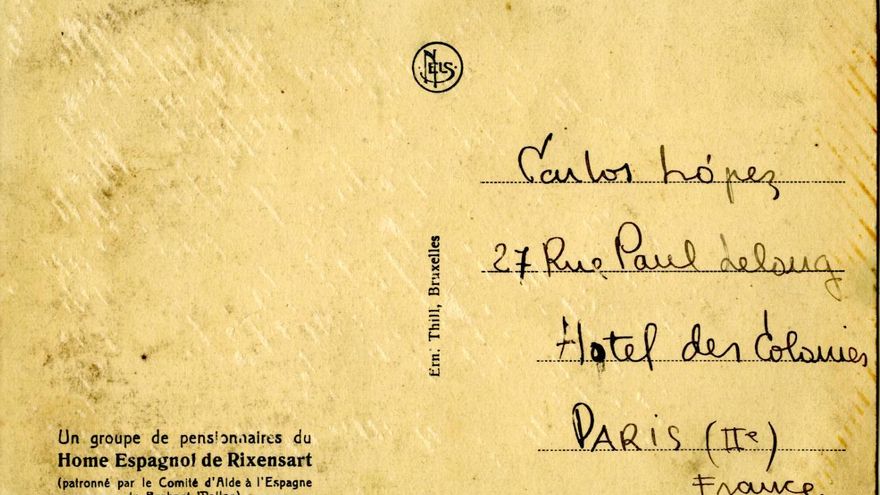 NELS
Carlos López
27 Rue Paul Lelong
Hotel des Colonies
PARIS (IIe)
France
Ern. Thill, Bruxelles
Un groupe de pensionnaires du
Home Espagnol de Rixensart
(patronné par le Comité d'Aide à l'Espagne